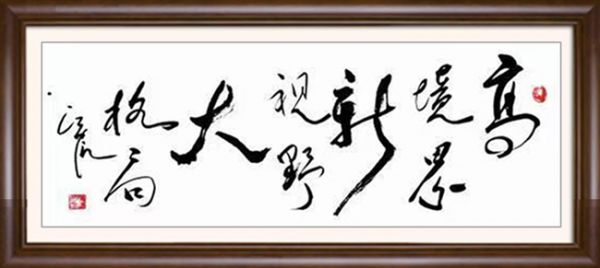 高
境界
新
視野
大
格局